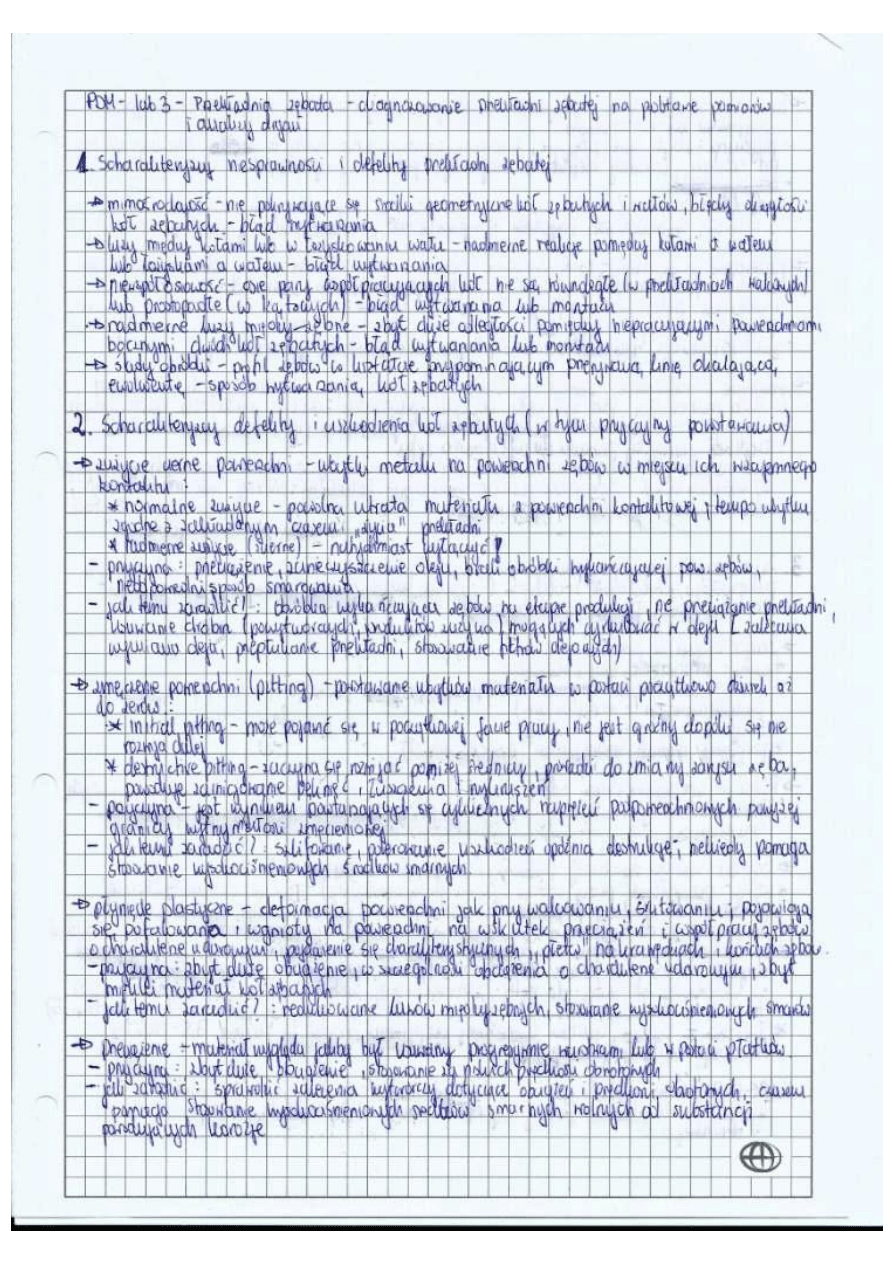 PDM - lab 3 - Przekładnia zębata - diagnozowanie przekładni zębatej na podstawie pomiarów
i analizy drgań
1. Scharakteryzuj niesprawności i defekty przekładni zębatej
→ mimośrodowość - nie pokrywające się środki geometryczne kół zębatych i wałów, błędy okrągłości
kół zębatych - błąd wytwarzania
→ luzy między kołami lub w łożyskowaniu wału - nadmierne relacje pomiędzy kołami a wałem
lub łożyskami a wałem - błąd wytwarzania
→ niewspółosiowość - osie pary współpracujących kół nie są równoległe (w przekładniach walcowych)
lub prostopadłe (w kątowych) - błąd wytwarzania lub montażu
→ nadmierne luzy między-zębne - zbyt duże odległości pomiędzy niepracującymi powierzchniami
bocznymi dwóch kół zębatych - błąd wytwarzania lub montażu
→ ślady obróbki - profil zębów w kształcie przypominającym przerywaną linię okalającą
ewolwentę - sposób wytwarzania kół zębatych
2. Scharakteryzuj defekty i uszkodzenia kół zębatych (w tym przyczyny powstawania)
→ zużycie cierne powierzchni - ubytki metalu na powierzchni zębów w miejscu ich wzajemnego
kontaktu:
* normalne zużycie - powolna utrata materiału z powierzchni kontaktowej; tempo ubytku
zgodne z zakładanym czasem „życia" przekładni
* nadmierne zużycie (cierne) - natychmiast wyłączyć!
- przyczyna: przeciążenie, zanieczyszczenie oleju, braki obróbki wykańczającej pow. zębów,
nieodpowiedni sposób smarowania
- jak temu zaradzić?: obróbka wykańczająca zębów na etapie produkcji, nie przeciążanie przekładni,
usuwanie drobin (powstworzących, produktów zużycia) mogących cyrkulować w oleju (zalecana
wymiana oleju, przepłukanie przekładni, stosowanie filtrów olejowych)
→ zmęczenie powierzchni (pitting) - powstawanie ubytków materiału w postaci początkowo dziurek aż
do żerów:
* initial pitting - może pojawić się w początkowej fazie pracy, nie jest groźny dopóki się nie
rozwija dalej
* destruktive pitting - zaczyna się rozwijać poniżej średnicy, prowadzi do zmiany zarysu zęba,
powoduje zainicjowanie pęknięć, łuszczenia i wykruszeń
- przyczyna - jest wynikiem powtarzających się cyklicznych naprężeń podpowierzchniowych powyżej
granicy wytrzymałości zmęczeniowej
- jak temu zaradzić?: szlifowanie, polerowanie uszkodzeń opóźnia destrukcję; niekiedy pomaga
stosowanie wysokociśnieniowych środków smarnych.
→ płynięcie plastyczne - deformacja powierzchni jak przy walcowaniu, śrutowaniu; pojawiają
się pofałdowania i wgnioty na powierzchni na wskutek przeciążeń i współpracy zębów
o charakterze udarowym, pojawienie się charakterystycznych „płetw" na krawędziach i końcach zębów.
- przyczyna: zbyt duże obciążenie, w szczególności obciążenia o charakterze udarowym, zbyt
miękki materiał kół zębatych
- jak temu zaradzić?: redukowanie luzów międzyzębnych, stosowanie wysokociśnieniowych smarów
→ przegrzenie - materiał wygląda jakby był usuwany progresywnie warstwami lub w postaci płatków
- przyczyna: zbyt duże obciążenie, stosowanie za niskich prędkości obrotowych
- jak zaradzić: sprawdzić zalecenia wytwórczy dotyczące obciążeń i prędkości obrotowych, czasem
pomaga stosowanie wysokociśnieniowych środków smarnych wolnych od substancji
powodujących korozję